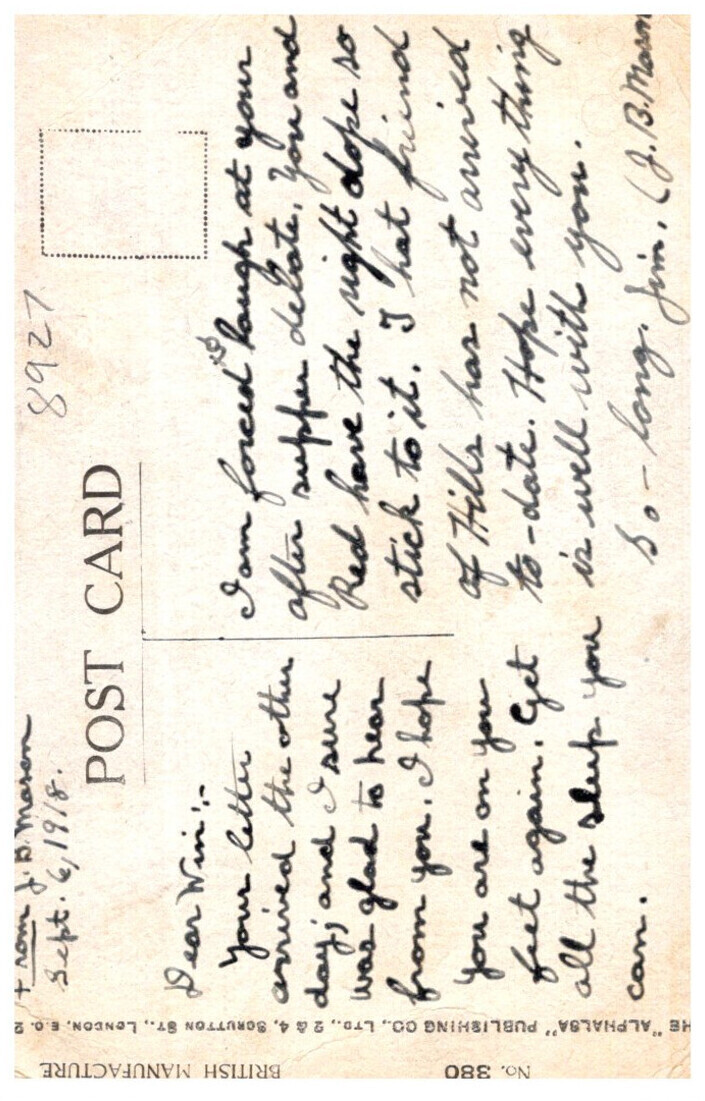 From J. B. Mason
Sept. 6, 1918.
8927
POST CARD
Dear Win:-
Your letter
arrived the other
day, and I sure
was glad to hear
from you. I hope
you are on you
feet again. Get
all the sleep you
can.
I am forced to laugh at your
after supper debate. You and
Red have the right dope so
stick to it. That friend
of Hills has not arrived
to-date. Hope everything
is well with you.
So-long. Jim. (J. B. Mason
HE "ALPHALSA" PUBLISHING CO., LTD., 2 & 4, SCRUTTON ST., LONDON, E.C. 2
BRITISH MANUFACTURE
No. 380